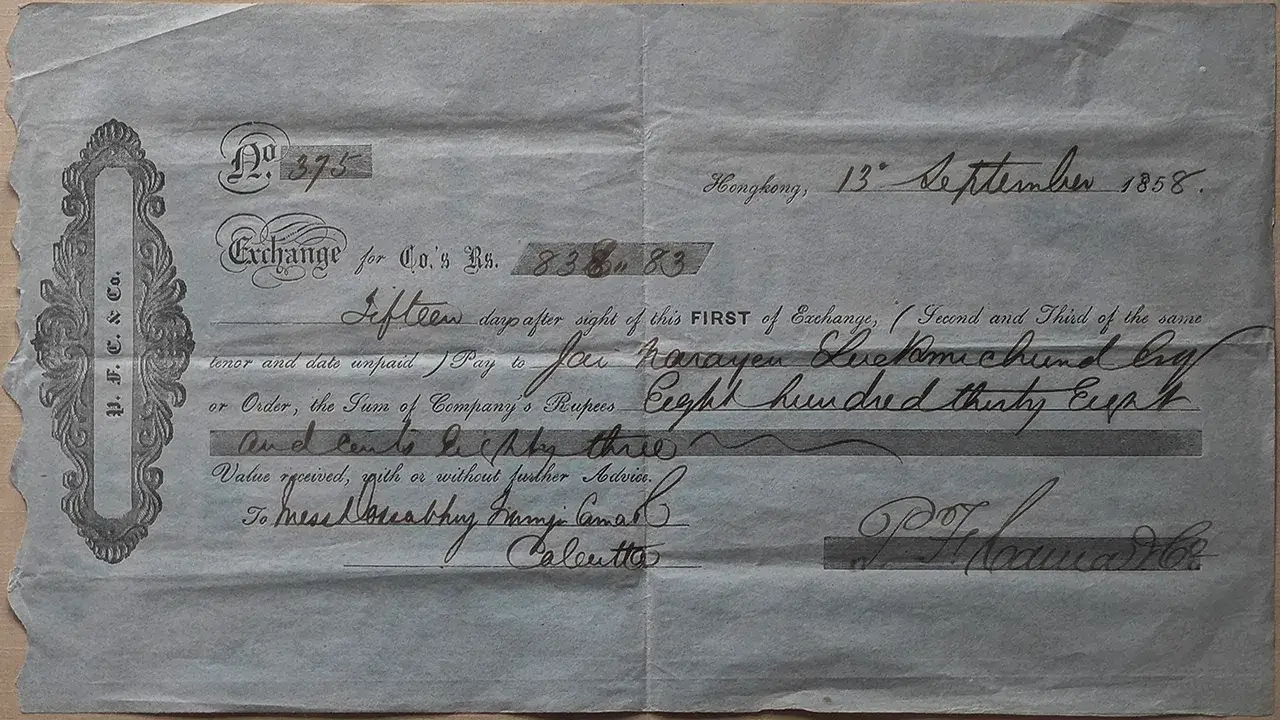 P. F. C. & Co.
No. 375
Hongkong, 13° September 1858.
Exchange for Co.'s Rs. 838 " 83
Fifteen days after sight of this FIRST of Exchange, (Second and Third of the same
tenor and date unpaid) Pay to Jai Narayen Luckmichund Esq
or Order, the Sum of Company's Rupees Eight hundred thirty Eight
and cents Eighty three
Value received, with or without further Advice.
To Mess Dossabhoy Camah
Calcutta
P F Cama & Co